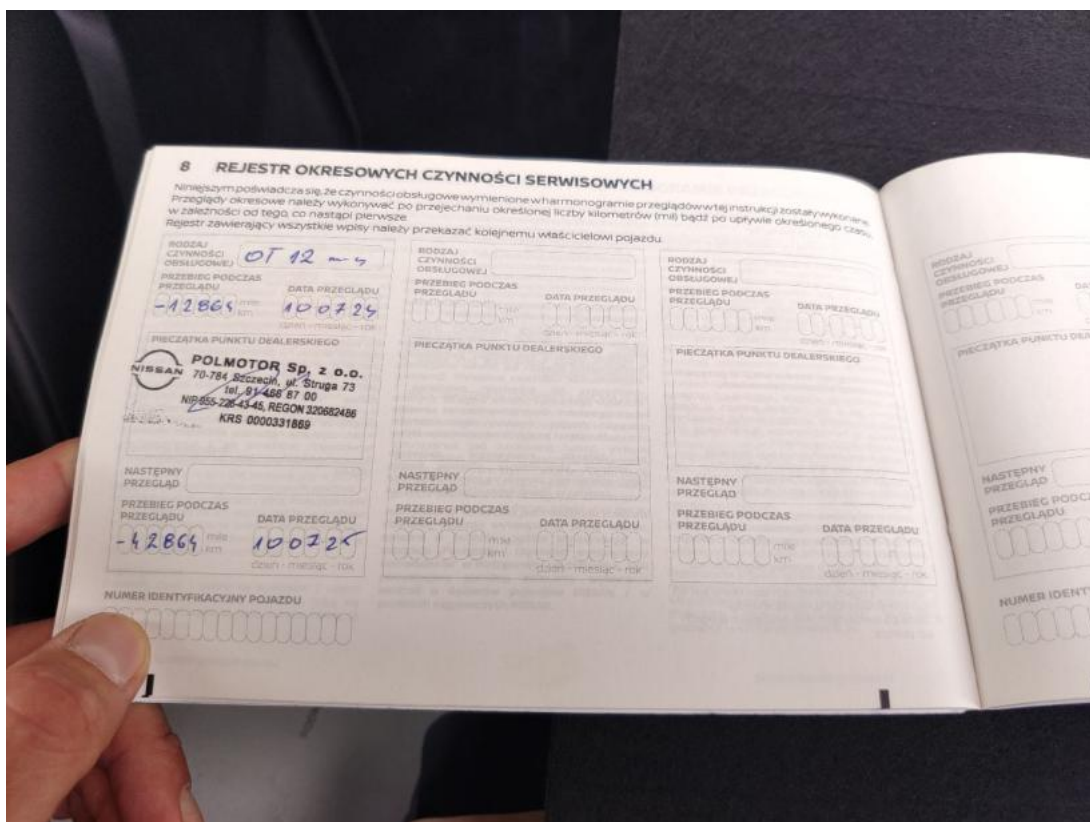 8 REJESTR OKRESOWYCH CZYNNOŚCI SERWISOWYCH
Niniejszym poświadcza się, że czynności obsługowe wymienione w harmonogramie przeglądów w tej instrukcji zostały wykonane.
Przeglądy okresowe należy wykonywać po przejechaniu określonej liczby kilometrów (mil) bądź po upływie określonego czasu,
w zależności od tego, co nastąpi pierwsze.
Rejestr zawierający wszystkie wpisy należy przekazać kolejnemu właścicielowi pojazdu.
RODZAJ
CZYNNOŚCI
OBSŁUGOWEJ
OT 12
PRZEBIEG PODCZAS
PRZEGLĄDU
DATA PRZEGLĄDU
-12864 mile
km
100724
dzień - miesiąc - rok
PIECZĄTKA PUNKTU DEALERSKIEGO
NISSAN
POLMOTOR Sp. z o.o.
70-784 Szczecin, ul. Struga 73
tel. 91 468 87 00
NIP 955-226-43-45, REGON 320682486
KRS 0000331869
NASTĘPNY
PRZEGLĄD
PRZEBIEG PODCZAS
PRZEGLĄDU
DATA PRZEGLĄDU
-42864 mile
km
100725
dzień - miesiąc - rok
NUMER IDENTYFIKACYJNY POJAZDU
RODZAJ
CZYNNOŚCI
OBSŁUGOWEJ
PRZEBIEG PODCZAS
PRZEGLĄDU
DATA PRZEGLĄDU
mile
km
dzień - miesiąc - rok
PIECZĄTKA PUNKTU DEALERSKIEGO
NASTĘPNY
PRZEGLĄD
PRZEBIEG PODCZAS
PRZEGLĄDU
DATA PRZEGLĄDU
mile
km
dzień - miesiąc - rok
RODZAJ
CZYNNOŚCI
OBSŁUGOWEJ
PRZEBIEG PODCZAS
PRZEGLĄDU
DATA PRZEGLĄDU
mile
km
dzień - miesiąc - rok
PIECZĄTKA PUNKTU DEALERSKIEGO
NASTĘPNY
PRZEGLĄD
PRZEBIEG PODCZAS
PRZEGLĄDU
DATA PRZEGLĄDU
mile
km
dzień - miesiąc - rok
RODZAJ
CZYNNOŚCI
OBSŁUGOWEJ
PRZEBIEG PODCZAS
PRZEGLĄDU
DA
km
PIECZĄTKA PUNKTU DEA
NASTĘPNY
PRZEGLĄD
PRZEBIEG PODC
PRZEGLĄDU
NUMER IDENT